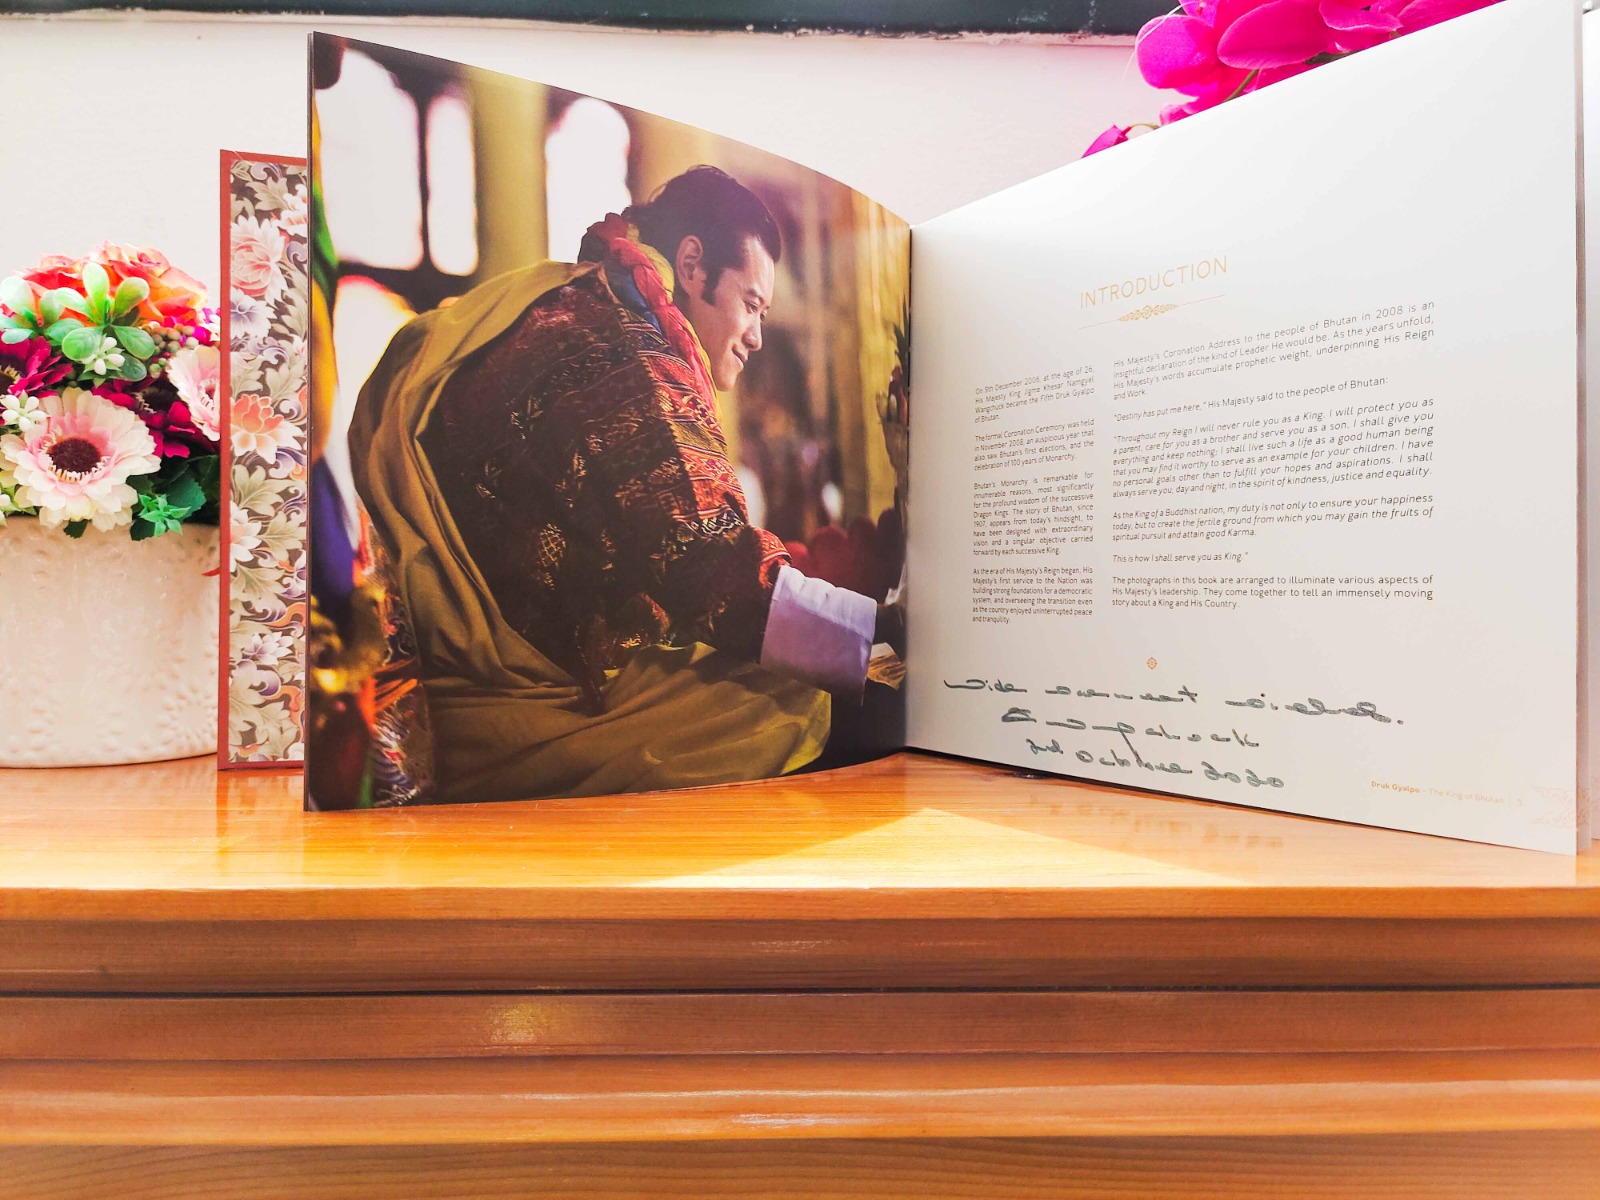 INTRODUCTION
On 9th December 2006, at the age of 26,
His Majesty King Jigme Khesar Namgyel
Wangchuck became the Fifth Druk Gyalpo
of Bhutan.
The formal Coronation Ceremony was held
in November 2008, an auspicious year that
also saw Bhutan's first elections, and the
celebration of 100 years of Monarchy.
Bhutan's Monarchy is remarkable for
innumerable reasons, most significantly
for the profound wisdom of the successive
Dragon Kings. The story of Bhutan, since
1907, appears from today's hindsight, to
have been designed with extraordinary
vision and a singular objective carried
forward by each successive King.
As the era of His Majesty's Reign began, His
Majesty's first service to the Nation was
building strong foundations for a democratic
system, and overseeing the transition even
as the country enjoyed uninterrupted peace
and tranquility.
His Majesty's Coronation Address to the people of Bhutan in 2008 is an
insightful declaration of the kind of Leader He would be. As the years unfold,
His Majesty's words accumulate prophetic weight, underpinning His Reign
and Work.
"Destiny has put me here," His Majesty said to the people of Bhutan:
"Throughout my Reign I will never rule you as a King. I will protect you as
a parent, care for you as a brother and serve you as a son. I shall give you
everything and keep nothing; I shall live such a life as a good human being
that you may find it worthy to serve as an example for your children. I have
no personal goals other than to fulfill your hopes and aspirations. I shall
always serve you, day and night, in the spirit of kindness, justice and equality.
As the King of a Buddhist nation, my duty is not only to ensure your happiness
today, but to create the fertile ground from which you may gain the fruits of
spiritual pursuit and attain good Karma.
This is how I shall serve you as King."
The photographs in this book are arranged to illuminate various aspects of
His Majesty's leadership. They come together to tell an immensely moving
story about a King and His Country.
2nd October 2020
Druk Gyalpo - The King of Bhutan | 5